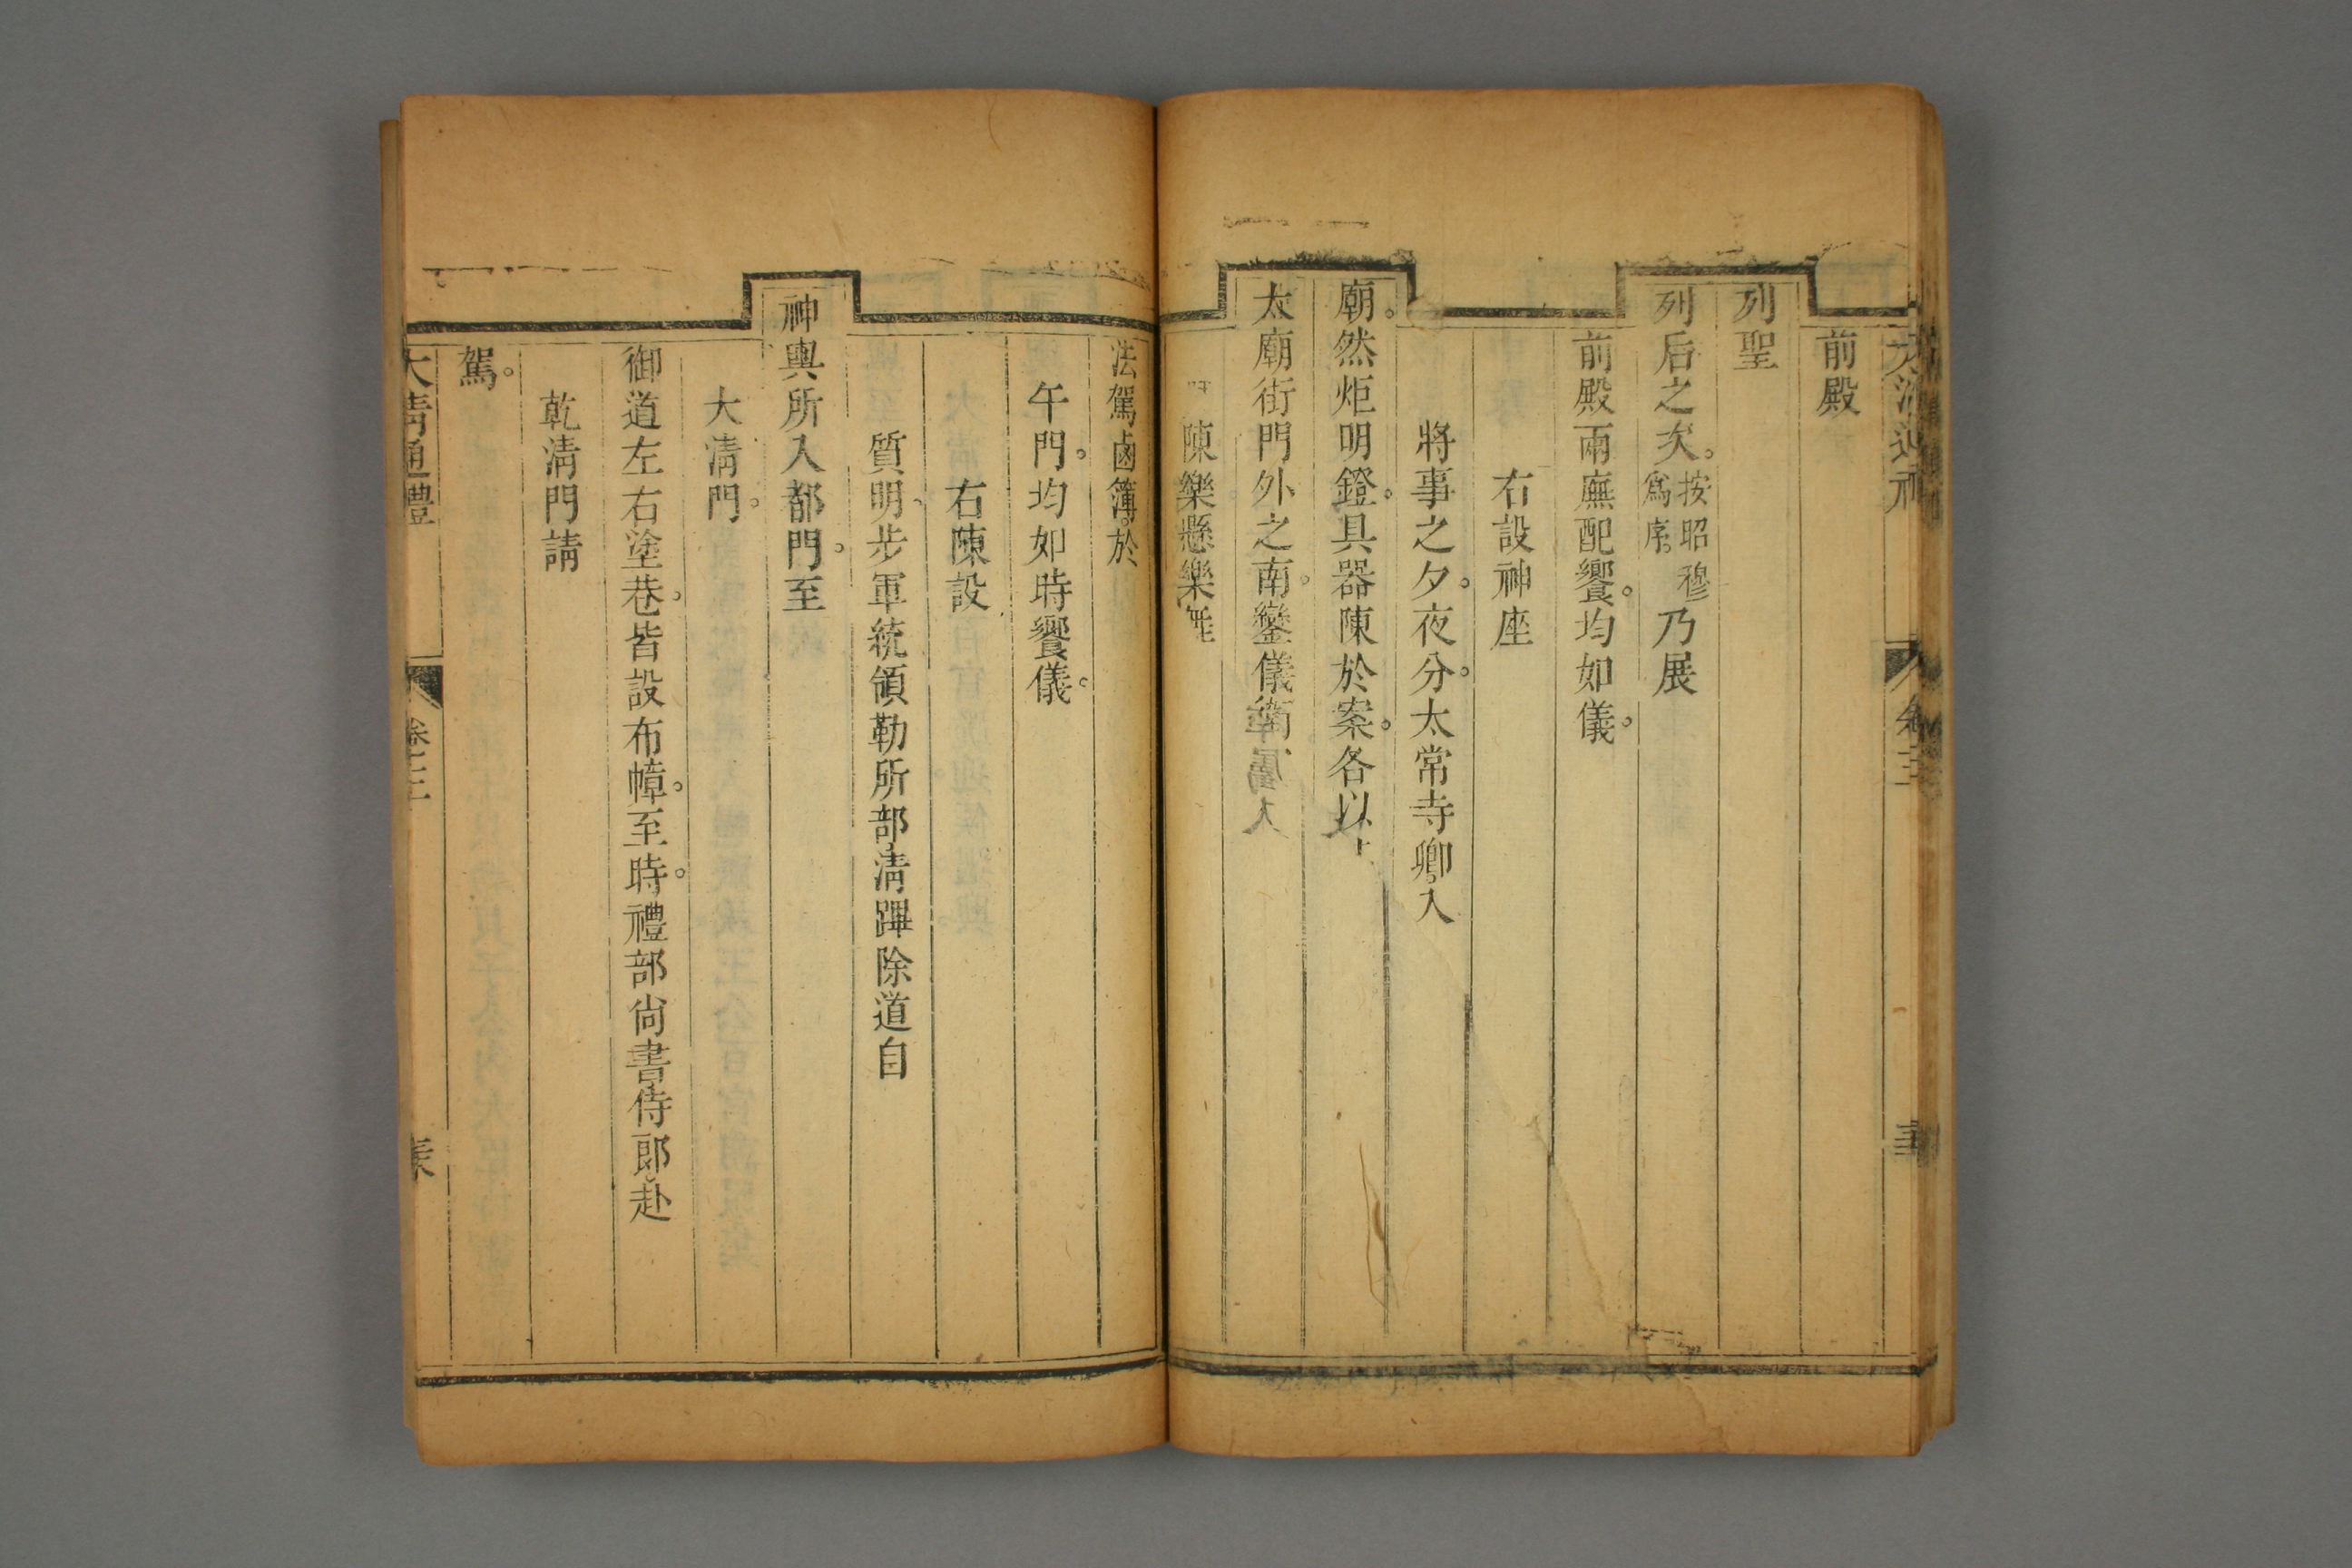 前殿
列聖
列后之次。按昭穆爲序。乃展
前殿兩廡配饗。均如儀。
右設神座
將事之夕。夜分。太常寺卿入
廟。然炬明鐙。具器陳於案。各以
太廟街門外之南。鑾儀衛
陳樂懸樂
法駕鹵簿。於
午門。均如時饗儀。
右陳設
質明。步軍統領勒所部清蹕除道自
神輿所入都門。至
大清門。
御道左右塗巷。皆設布幛。至時。禮部尚書侍郞赴
乾清門請
駕。
大清通禮
卷三